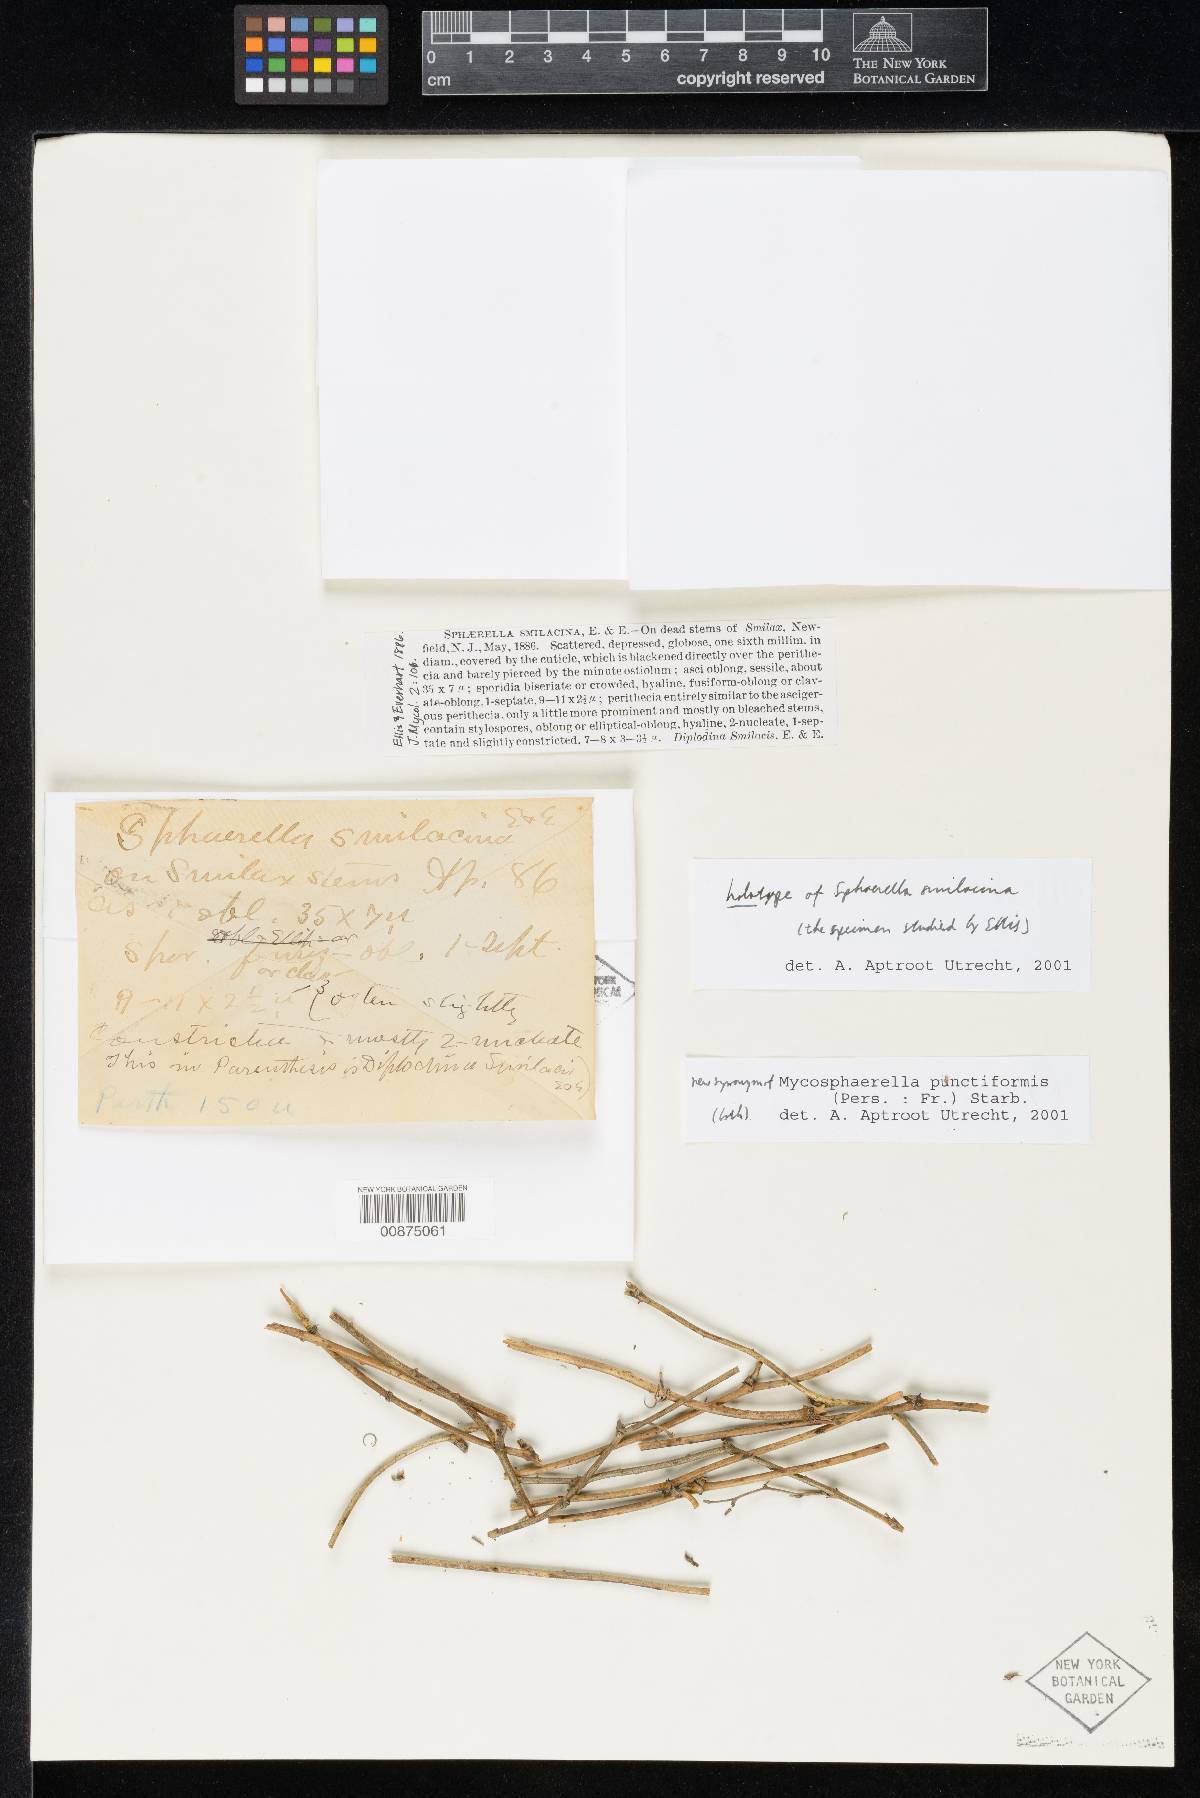 0 1 2 3 4 5 6 7 8 9 10
cm
copyright reserved
THE NEW YORK
BOTANICAL GARDEN
Ellis & Everhart 1886.
J. Mycol. 2:100.
SPHÆRELLA SMILACINA, E. & E.—On dead stems of Smilax, New-
field, N. J., May, 1886. Scattered, depressed, globose, one sixth millim. in
diam., covered by the cuticle, which is blackened directly over the perithe-
cia and barely pierced by the minute ostiolum; asci oblong, sessile, about
35 x 7 µ; sporidia biseriate or crowded, hyaline, fusiform-oblong or clav-
ate-oblong, 1-septate, 9—11 x 2½ µ; perithecia entirely similar to the asciger-
ous perithecia, only a little more prominent and mostly on bleached stems,
contain stylospores, oblong or elliptical-oblong, hyaline, 2-nucleate, 1-sep-
tate and slightly constricted, 7—8 x 3—3½ µ. Diplodina Smilacis, E. & E.
Sphaerella smilacina E & E
on Smilax stems Ap. 86
obl. 35 x 7 µ
Spor. fus - obl. 1-sept.
or clav-
9-11 x 2½ µ (often slightly
constricted & mostly 2-nucleate
This in Parenthesis is Diplodina Smilacis
E & E)
Perith 150 µ
NEW YORK BOTANICAL GARDEN
00875061
holotype of Sphaerella smilacina
(the specimen studied by Ellis)
det. A. Aptroot Utrecht, 2001
new synonym of Mycosphaerella punctiformis
(Pers. : Fr.) Starb.
det. A. Aptroot Utrecht, 2001
NEW YORK
BOTANICAL
GARDEN